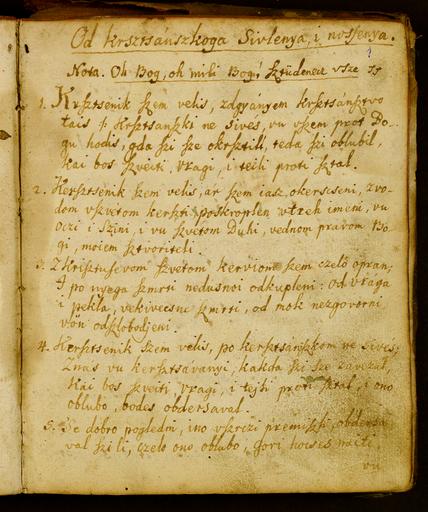 Od krsztsánszkoga Sivlenya, i nossenya.
1
Nota. Oh Bog, oh mili Bog! sztüdenecz vsze
1. Krsztsenik szem velis, zdgyányem krsztsánsztvo
tais, i krsztsanszki ne sives, vu vszem prot Bo-
gu hodis, gda szi sze okrsztil, teda szi oblubil,
kai bos szveiti, vragi, i teili proti sztal.
2. Kersztsenik szem velis, ar szem iasz okerscseni, z vo-
dom vszvetom kerszti poskroplen, v treh imeni, vu
Oczi i Szini, i vu szvetom Duhi, vednom pravom Bo-
gi, moiem sztvoriteli.
3. Z Krisztusevom szvetom kerviom szem czelo opran,
I po nyega szmrti nedusnoi odkupleni: Od vraga
i pekla, vekivecsne szmrti, od mok nezgovorni
vön odszlobodjeni.
4. Kersztsenik szem velis, po kersztsánszkom ne sives,
Znas vu kersztsávanyi, kakda szi sze zavezal,
Kai bos szveiti vragi, i tejli proti sztal, i ono
oblubo, bodes obdersaval.
5. Se dobro pogledni, ino vszrczi premiszli, obdersa
val szi li, czelo ono oblubo, gori hocses naiti
vu